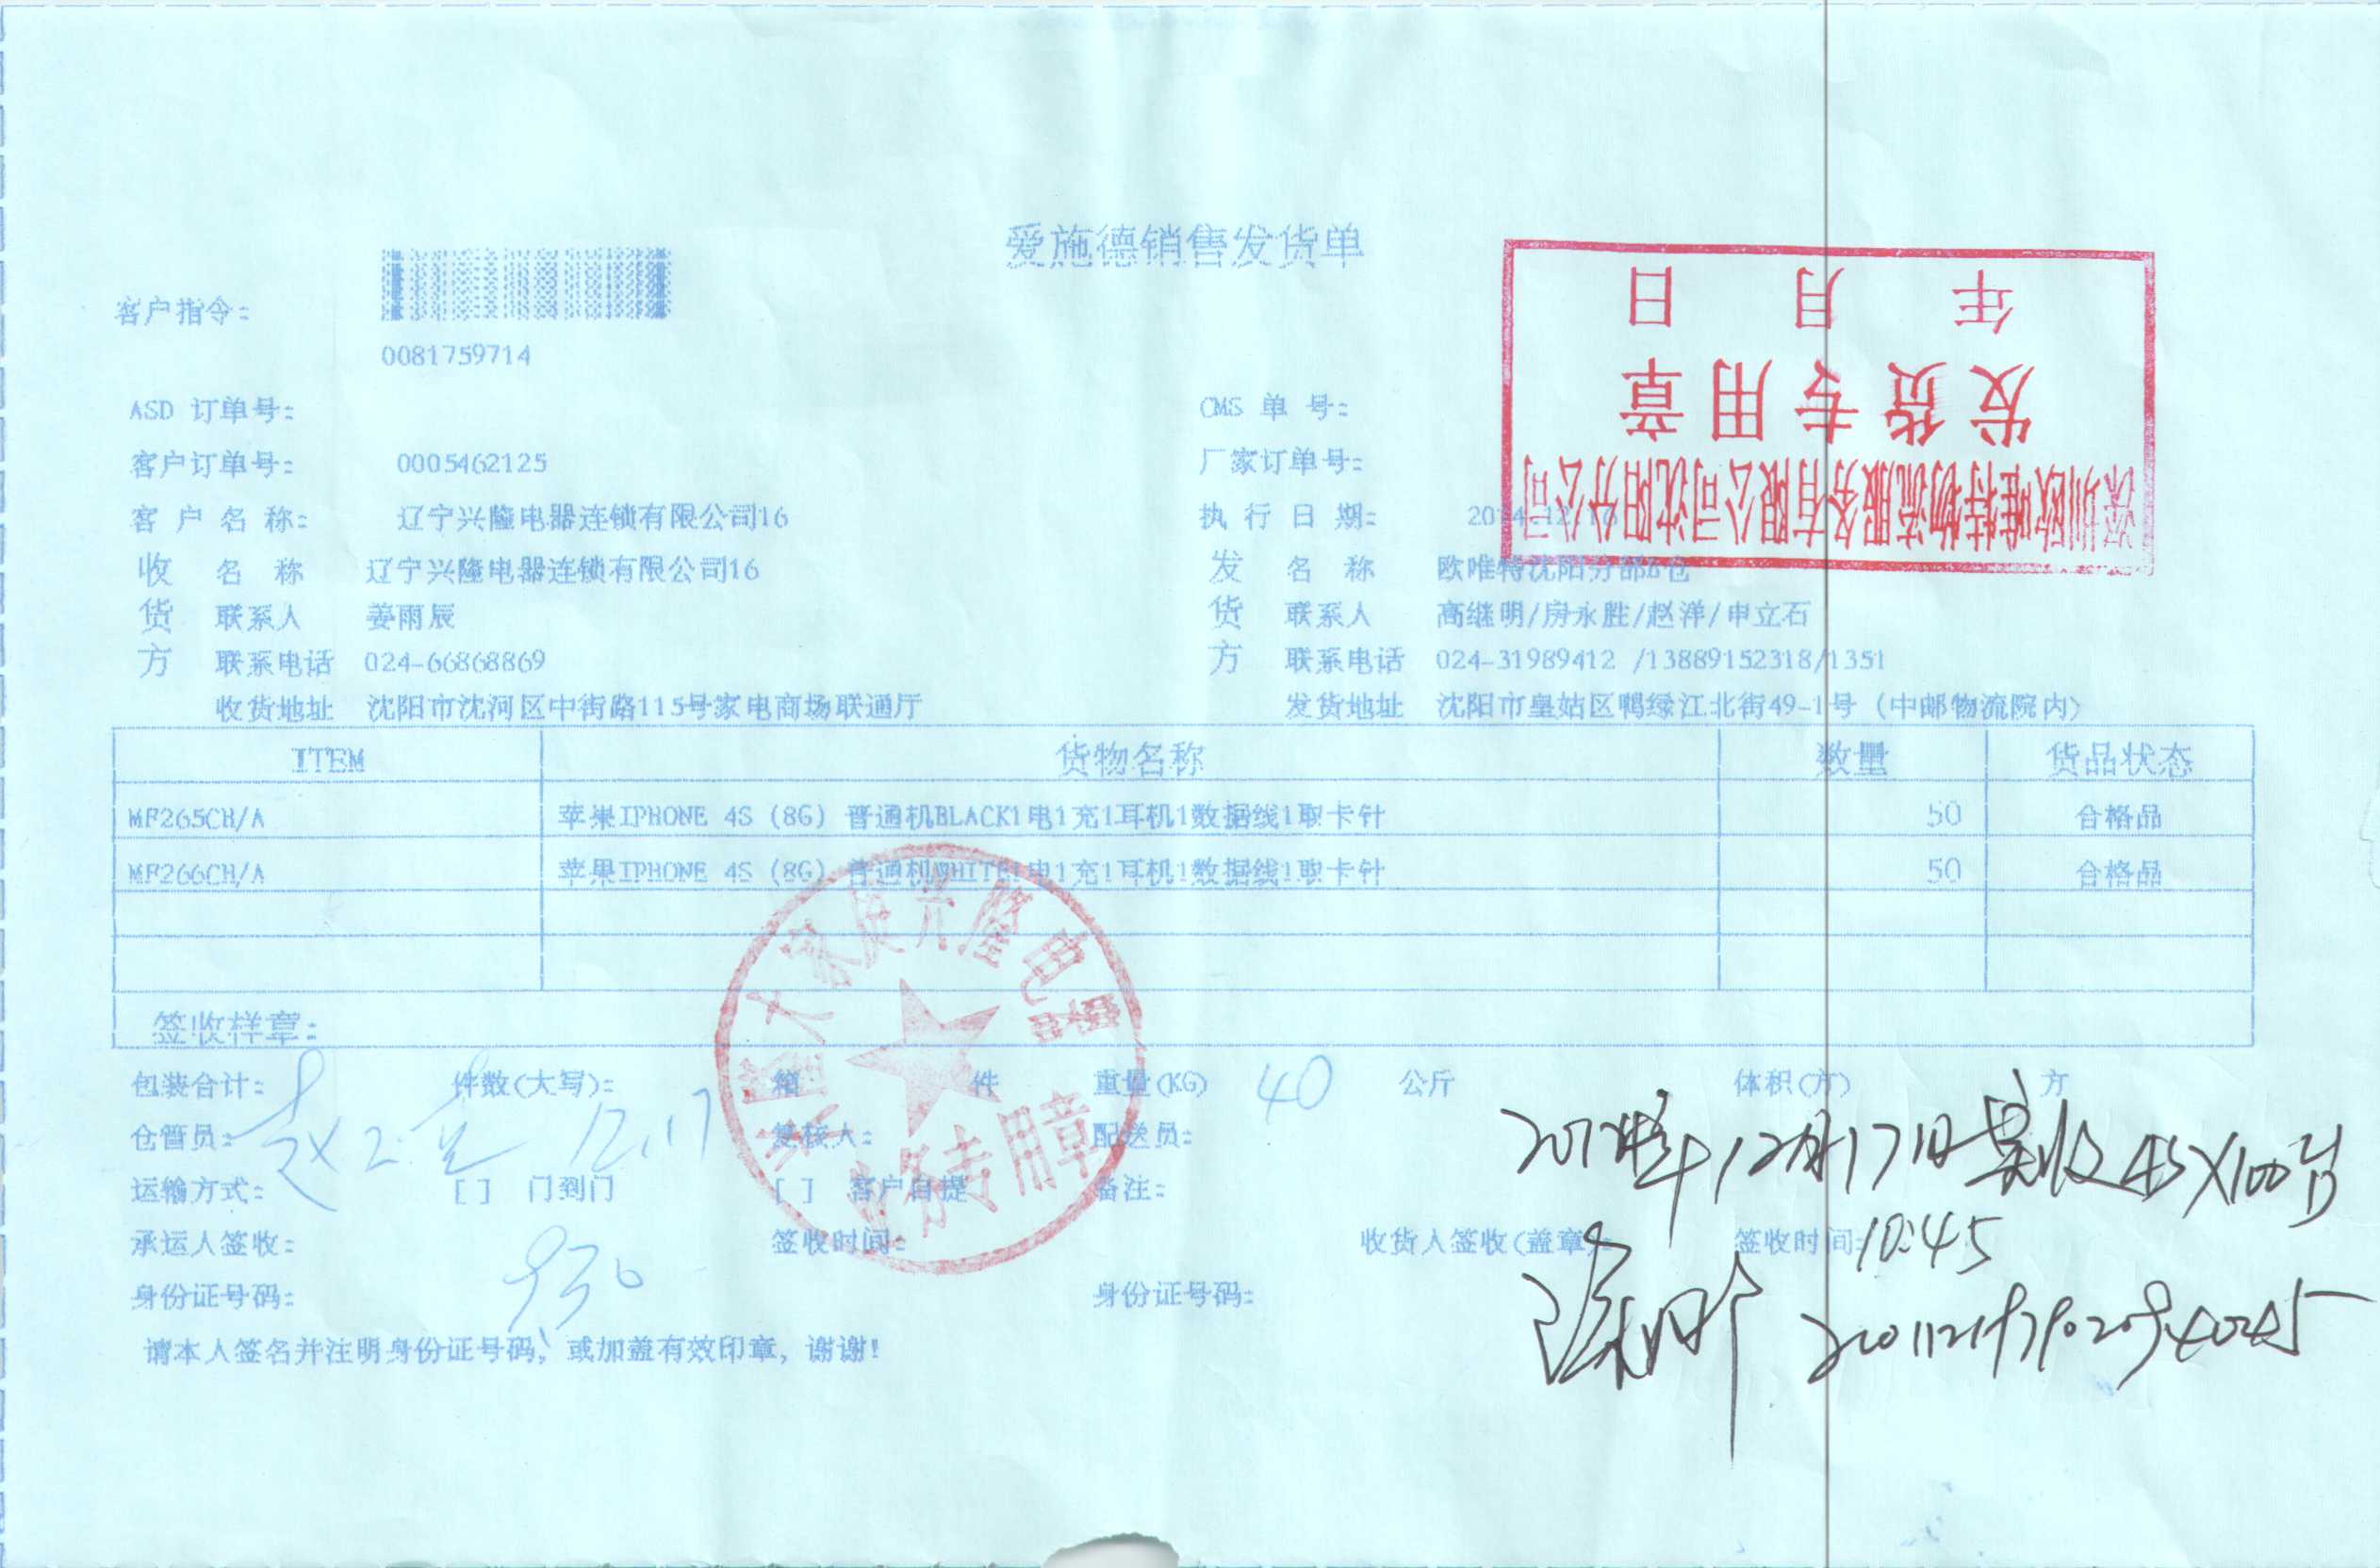 爱施德销售发货单
客户指令:
0081759714
ASD 订单号:
CMS 单 号:
客户订单号: 0005462125
厂家订单号:
客 户 名 称: 辽宁兴隆电器连锁有限公司16
执 行 日 期: 2014.12.16
收货方
名 称 辽宁兴隆电器连锁有限公司16
联系人 姜雨辰
联系电话 024-66868869
收货地址 沈阳市沈河区中街路115号家电商场联通厅
发货方
名 称 欧唯特沈阳分部B仓
联系人 高继明/房永胜/赵洋/申立石
联系电话 024-31989412 /13889152318/1351
发货地址 沈阳市皇姑区鸭绿江北街49-1号 (中邮物流院内)
深圳欧唯特物流服务有限公司沈阳分公司
发货专用章
年 月 日
ITEM 货物名称 数量 货品状态
MF265CH/A 苹果IPHONE 4S (8G) 普通机BLACK1电1充1耳机1数据线1取卡针 50 合格品
MF266CH/A 苹果IPHONE 4S (8G) 普通机WHITE1电1充1耳机1数据线1取卡针 50 合格品
签收样章:
兴隆大家庭兴隆电器
业务专用章
包装合计: 件数(大写): 箱 件 重量(KG) 40 公斤 体积(方) 方
仓管员: 12.17 复核人: 配送员:
12月17日 收4S×100台
运输方式: [ ] 门到门 [ ] 客户自提 备注:
承运人签收: 签收时间: 收货人签收(盖章): 签收时间: 10:45
930
身份证号码: 身份证号码:
请本人签名并注明身份证号码, 或加盖有效印章, 谢谢!